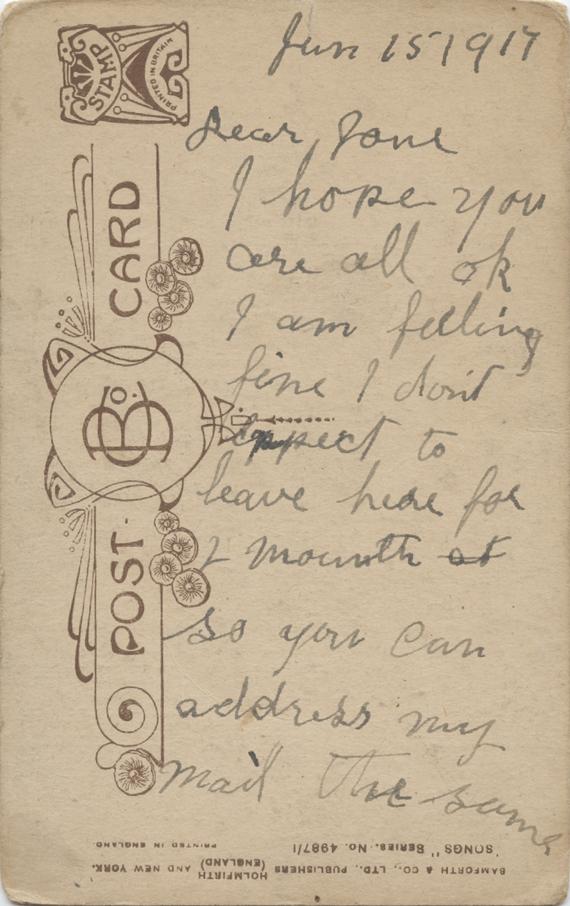 Jun 15 1917
Dear Jane
I hope you
are all ok
I am felling
fine I dont
expect to
leave here for
2 mounth at
so you can
address my
mail the same
STAMP
PRINTED IN BRITAIN
POST CARD
B Co.
BAMFORTH & CO., LTD., PUBLISHERS HOLMFIRTH (ENGLAND) AND NEW YORK.
"SONGS" SERIES. No. 4987/1
PRINTED IN ENGLAND